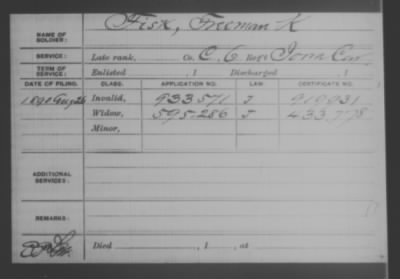 NAME OF SOLDIER: Fisk, Freeman K
SERVICE: Late rank, Co. C, 6 Reg't Iowa Cav
TERM OF SERVICE: Enlisted , 1 Discharged , 1
DATE OF FILING. CLASS. APPLICATION NO. LAW CERTIFICATE NO.
1890 Aug 26 Invalid, 933.571 J 910.931
Widow, 595.286 J 433.778
Minor,
ADDITIONAL SERVICES:
REMARKS:
Died , 1 , at